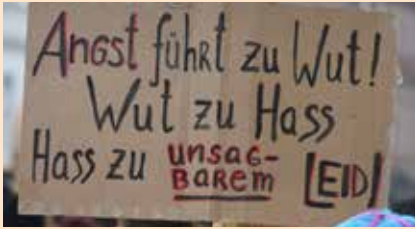 Angst führt zu Wut!
Wut zu Hass
Hass zu unsag-
barem LEID